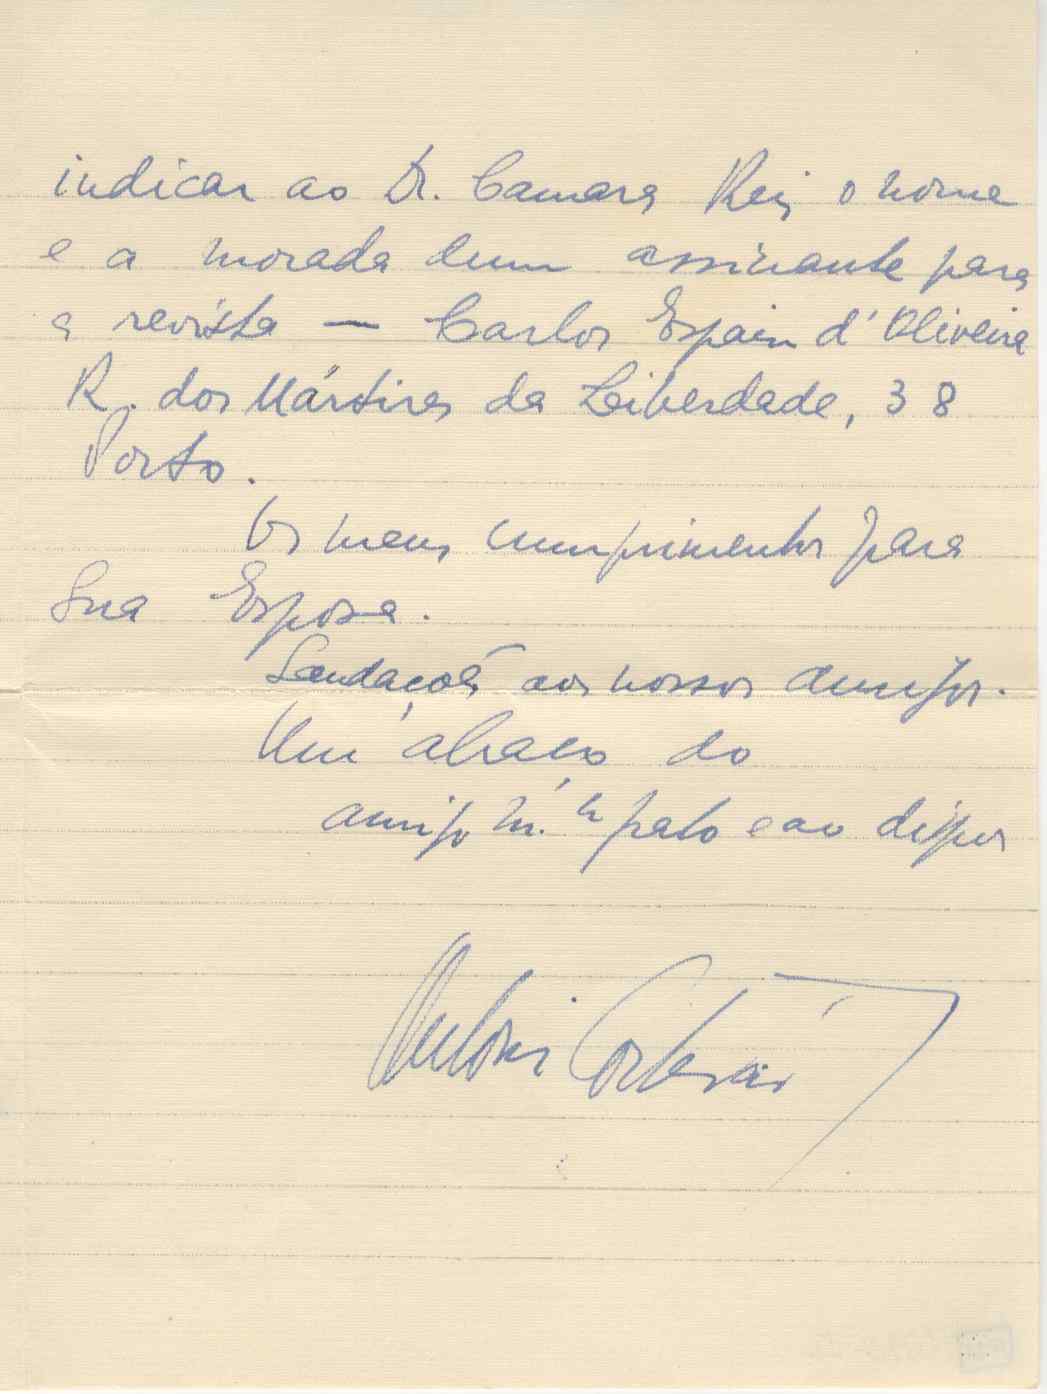 indicar ao Dr. Camara Reis o nome
e a morada dum assinante para
a revista — Carlos Espain d'Oliveira
R. dos Mártires da Leiberdade, 38
Porto.
Os meus cumprimentos para
Sua Esposa.
Saudações aos nossos amigos.
Um abraço do
amigo m.to grato e ao dispor
António Cortesão